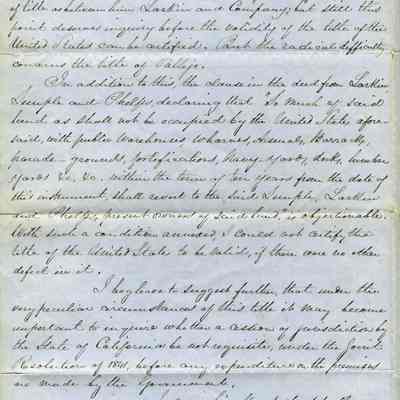 of title as between him Larkin and Company; but still this
point deserves inquiry before the validity of the title of the
United States can be certified. But the radical difficulty
concerns the title of Vallejo.
In addition to this, the clause in the deed from Larkin
Semple and Phelps, declaring that "so much of said
land as shall not be occupied by the United States, afore-
said, with public Warehouses Wharves, Arsenals, Barracks,
parade-grounds, fortifications, Navy Yards, docks, lumber
yards &c. &c. within the term of ten years from the date of
this instrument, shall revert to the said Semple, Larkin
and Phelps, present owners of said land, is objectionable.
With such a condition annexed, I could not certify the
title of the United States to be valid, if there were no other
defect in it.
I beg leave to suggest further, that under the
very peculiar circumstances of this title it may become
important to inquire whether a cession of jurisdiction by
the State of California be not requisite, under the Joint
Resolution of 1841, before any expenditure on the premises
is made by the Government.